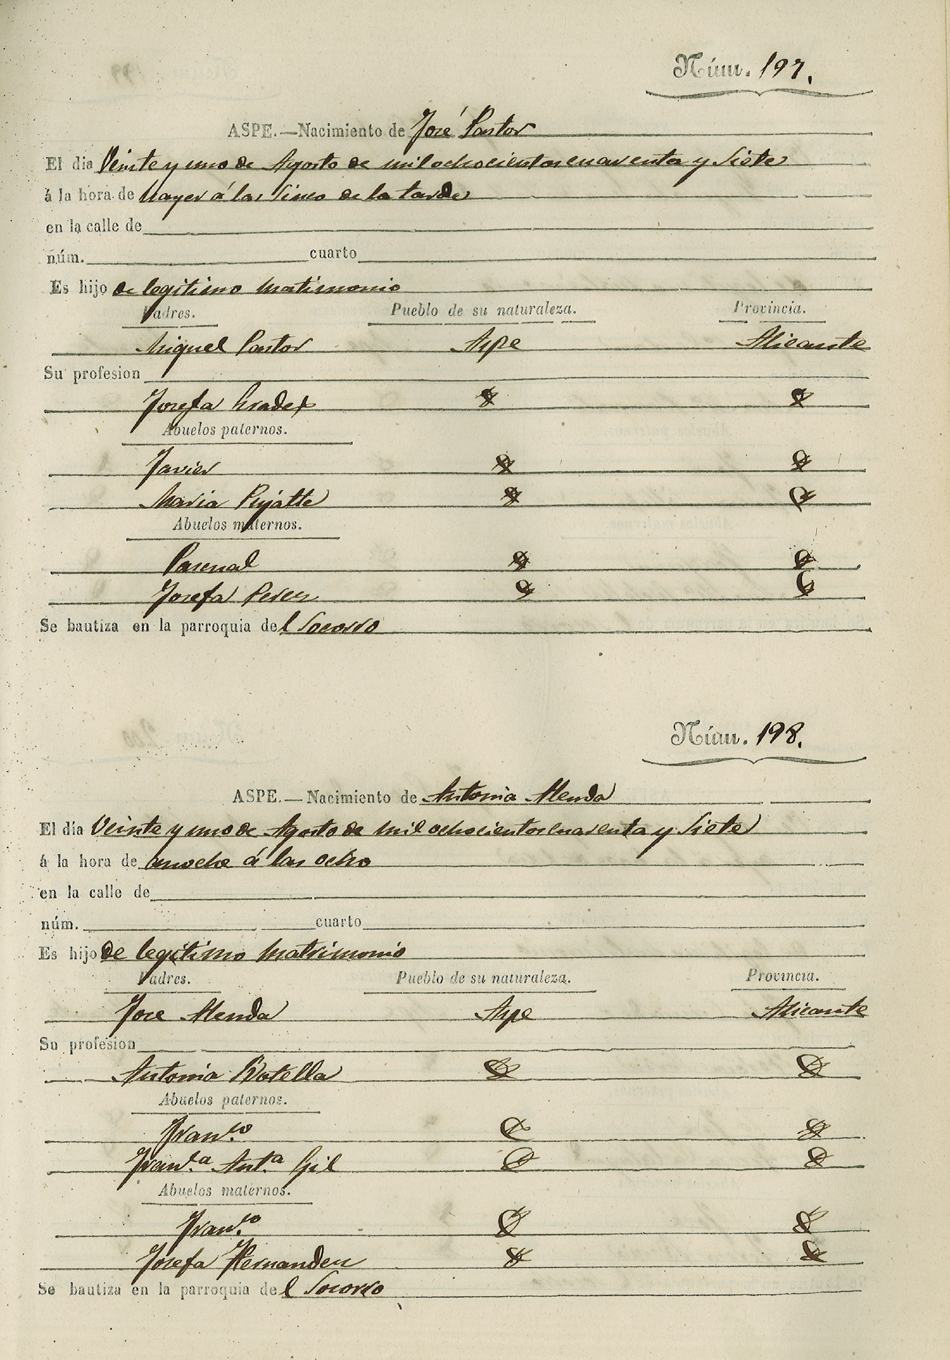 Núm. 197.
ASPE.—Nacimiento de José Pastor
El dia Veinte y uno de Agosto de mil ochocientos cuaventa y Siete
á la hora de hayer á las Sinco de la tarde
en la calle de
núm. cuarto
Es hijo de legitimo matrimonio
Padres. Pueblo de su naturaleza. Provincia.
Miguel Pastor Aspe Alicante
Su profesion
Josefa
Abuelos paternos.
Javier
Maria Pujalte
Abuelos maternos.
Pascual
Josefa Peres
Se bautiza en la parroquia del Socorro
Núm. 198.
ASPE.—Nacimiento de Antonia Alenda
El día Veinte y uno de Agosto de mil ochocientos cuaventa y Siete
á la hora de anoche á las ocho
en la calle de
núm. cuarto
Es hijo de legitimo matrimonio
Padres. Pueblo de su naturaleza. Provincia.
Jose Alenda Aspe Alicante
Su profesion
Antonia Botella
Abuelos paternos.
Fran.co
Fran.ca Ant.a Gil
Abuelos maternos.
Fran.co
Josefa Hernandez
Se bautiza en la parroquia del Socorro